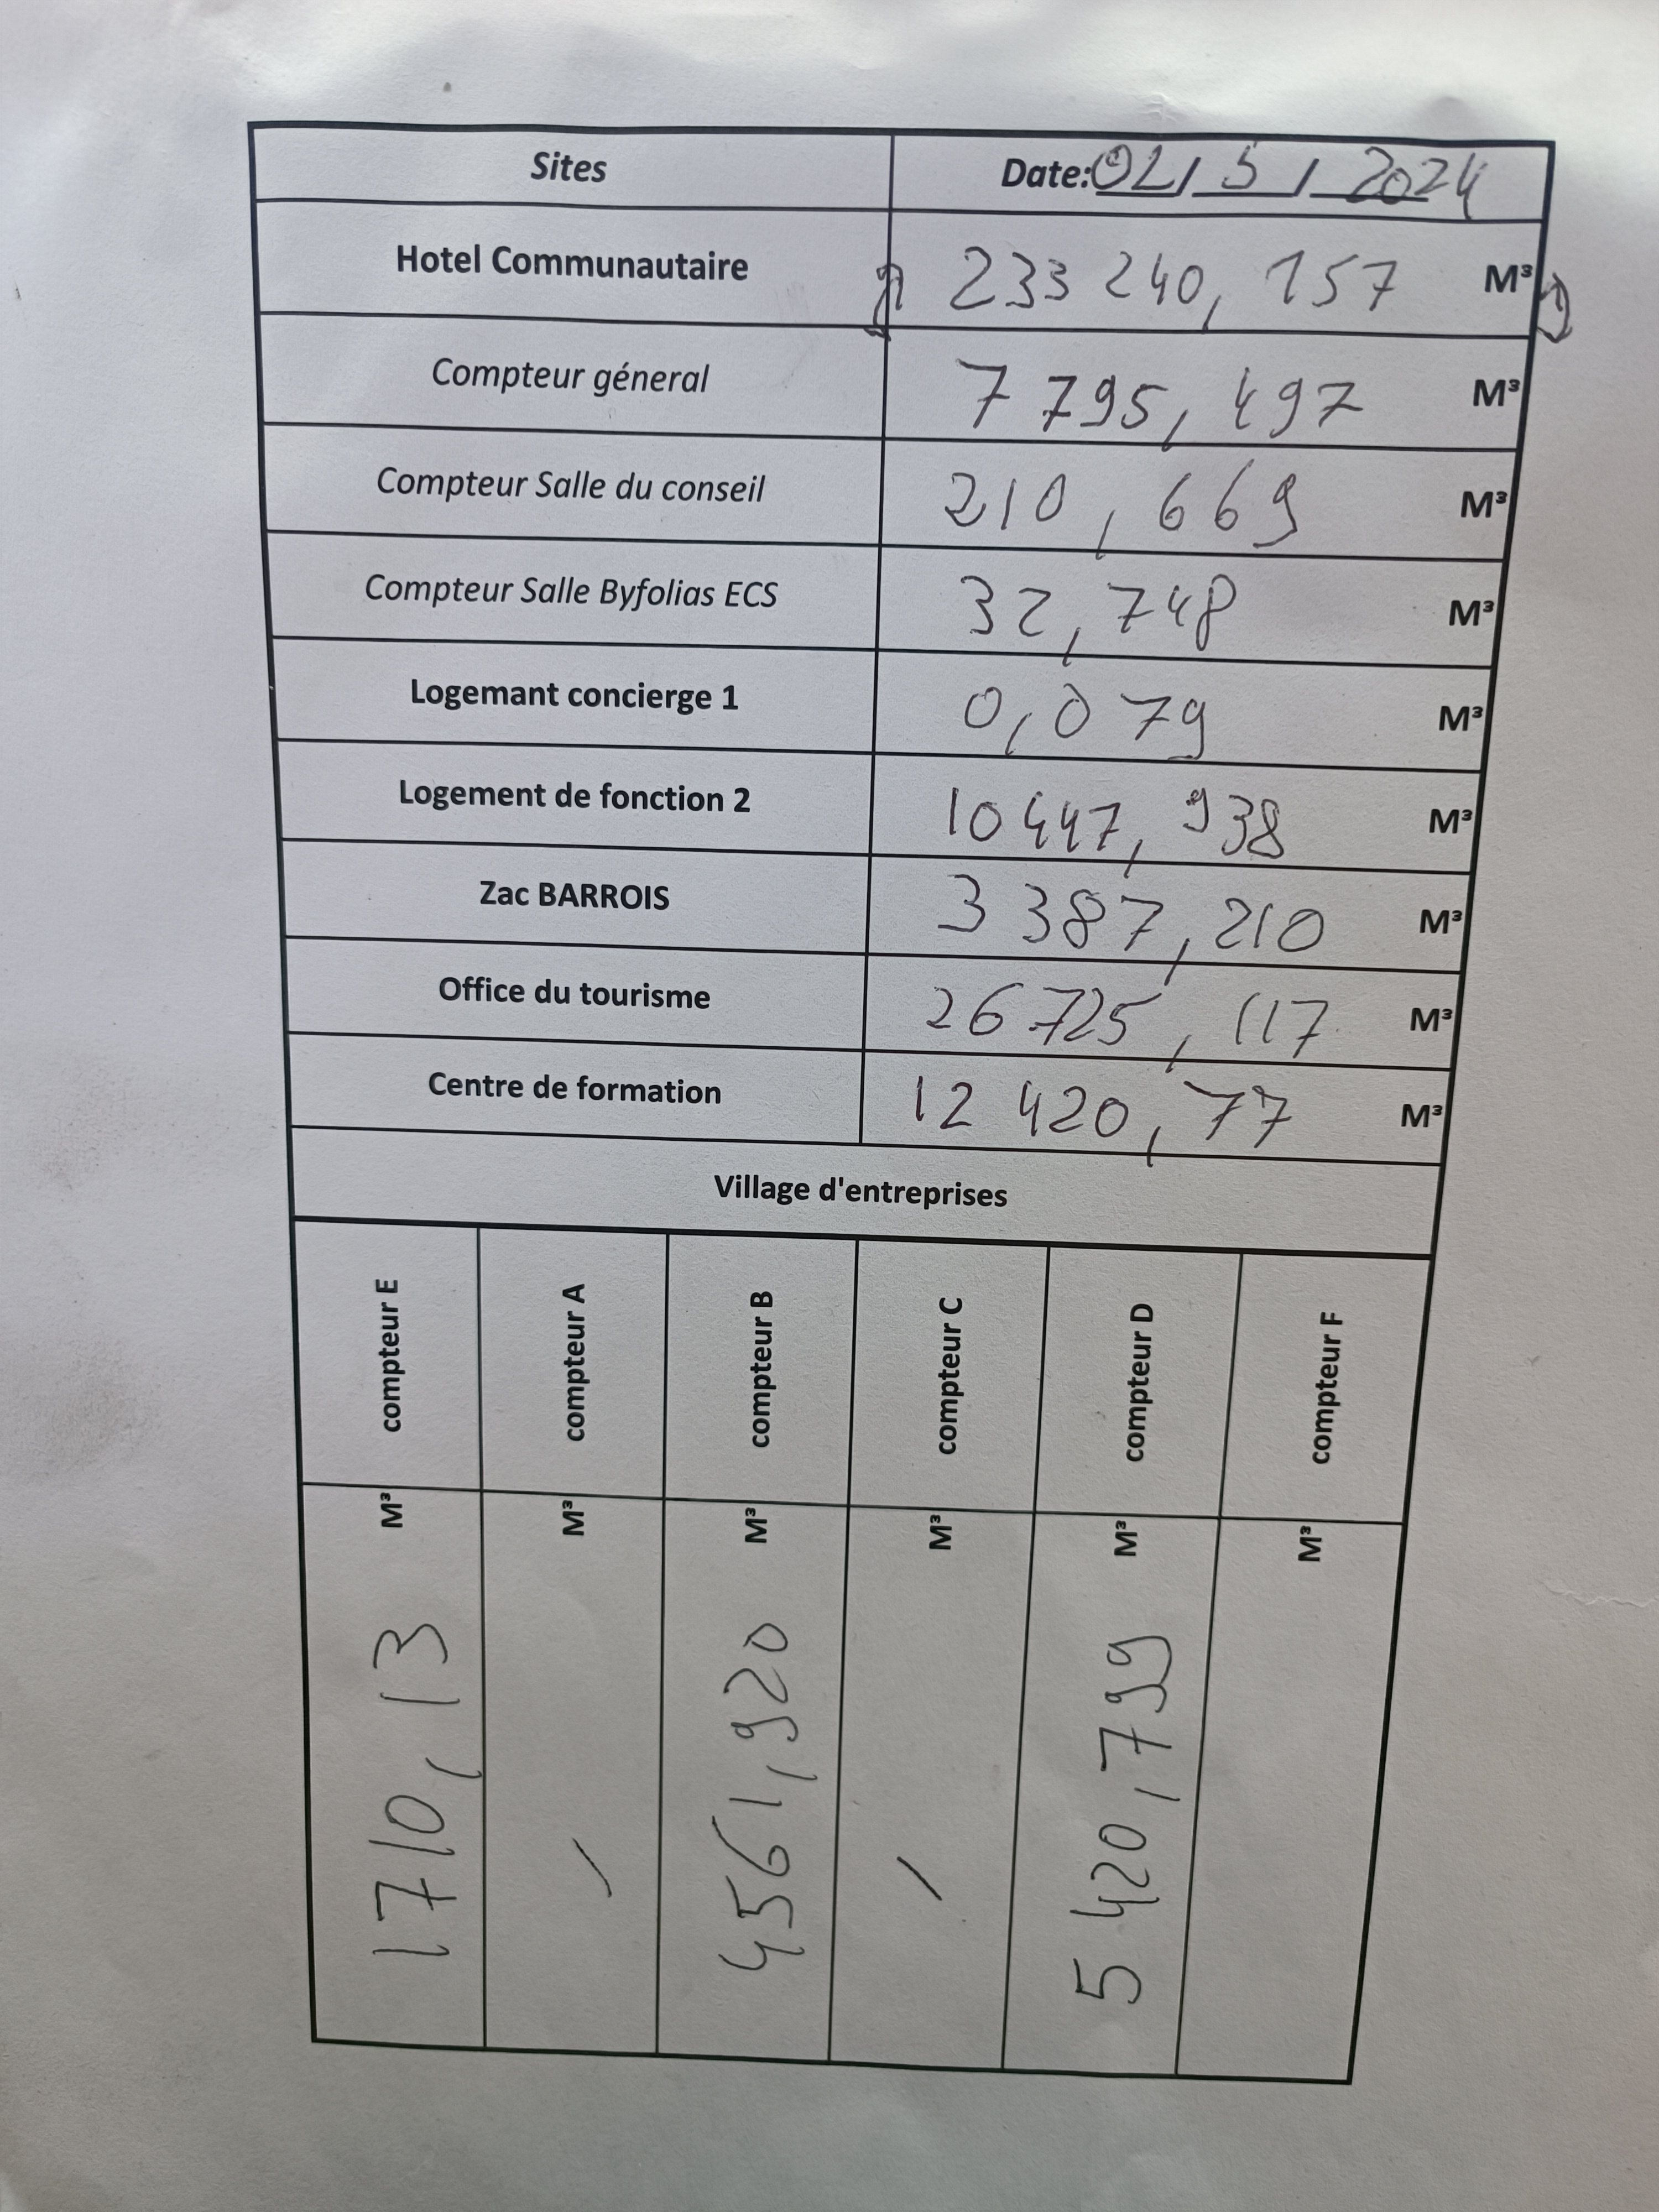 Sites Date: 02/ 5 / 2024
Hotel Communautaire 233 240, 157 M³
Compteur géneral 7 795, 497 M³
Compteur Salle du conseil 210, 669 M³
Compteur Salle Byfolias ECS 32, 748 M³
Logemant concierge 1 0,079 M³
Logement de fonction 2 10447, 938 M³
Zac BARROIS 3 387, 210 M³
Office du tourisme 26 725, 117 M³
Centre de formation 12 420, 77 M³
Village d'entreprises
compteur E 1710, 13 M³
compteur A / M³
compteur B 4561, 920 M³
compteur C / M³
compteur D 5 420, 799 M³
compteur F M³